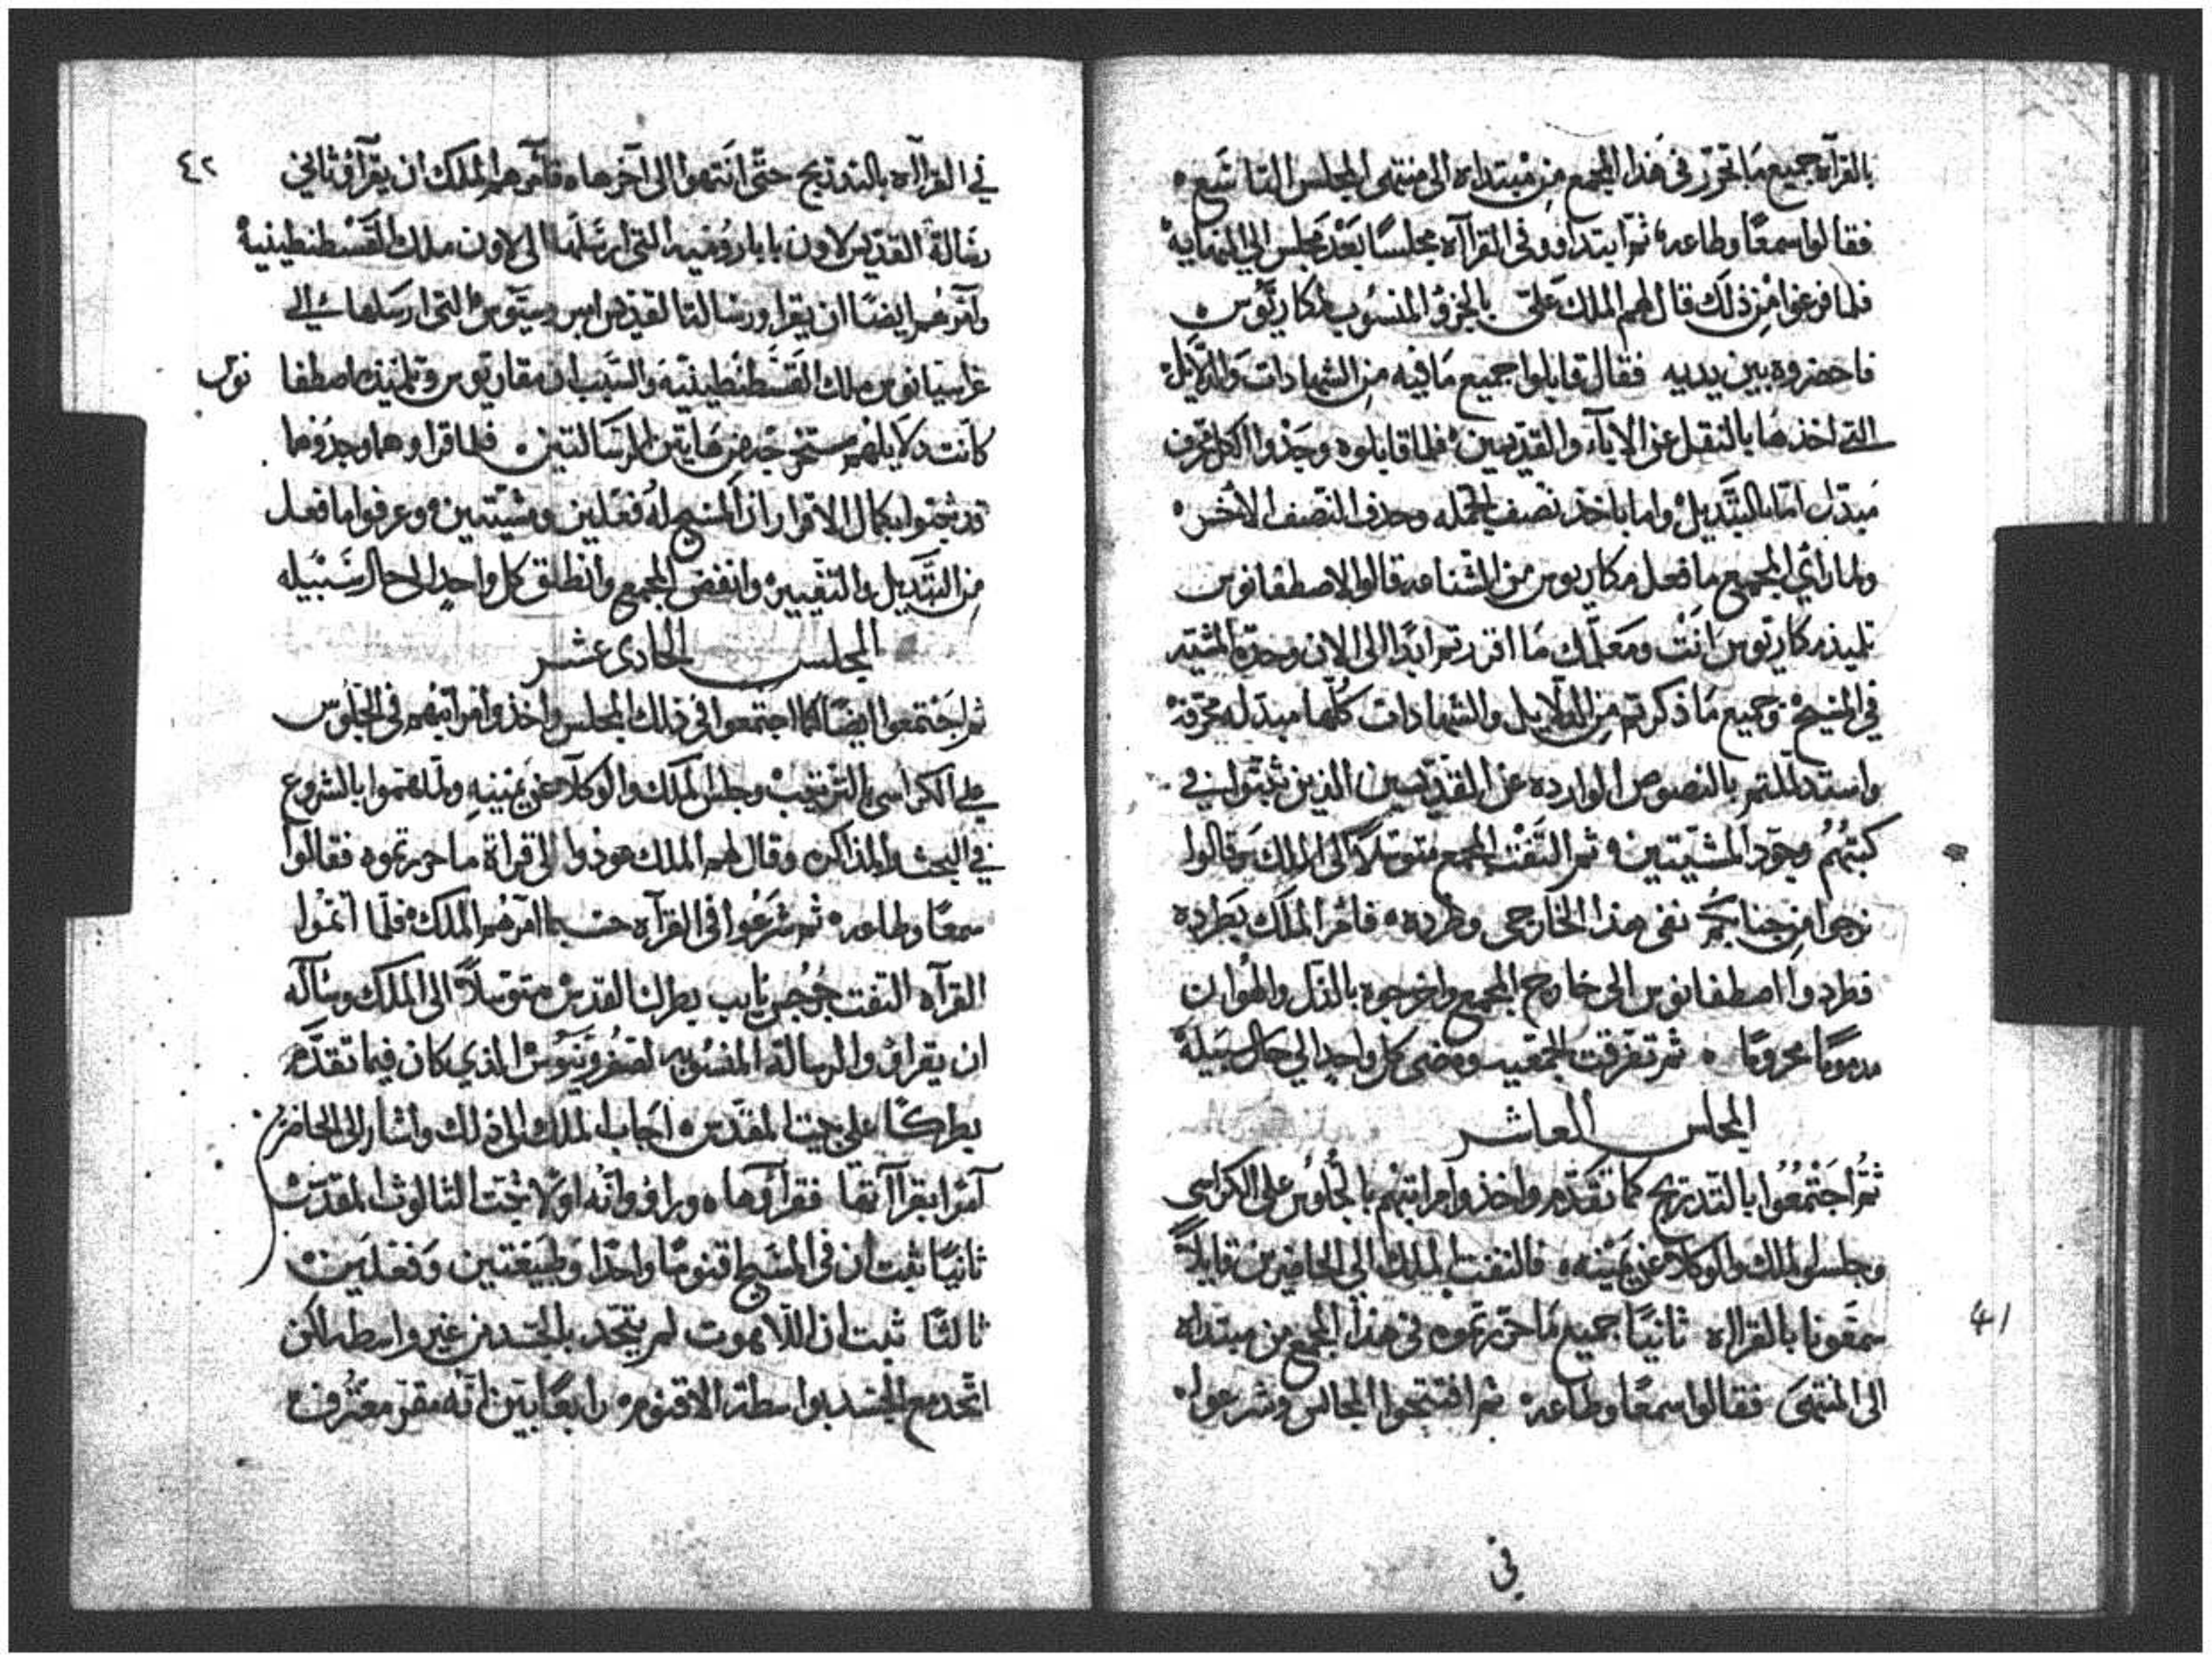 بالقرآه جميع ما تحرر فى هذا المجمع من مبتداه الى منتهى المجلس التاسع
فقالوا سمعًا وطاعه ثم ابتداوو فى القراآه مجلسًا بعد مجلس الي النهايه
فلما فرغوا من ذلك قال لهم الملك علىّ بالجزؤ المنسوب لمكاريوس
فاحضروه بين يديه فقال قابلوا جميع ما فيه من الشهادات والدلايل
التى اخذها بالنقل عن الاباء والقديسين فلما قابلوه وجدوا الكل محرف
مبدل اما بالتبديل واما باخذ نصف الجمله وحذف النصف الاخر
ولما رأي المجمع ما فعل مكاريوس من الشناعه قالوا لاصطفانوس
تلميذ مكاريوس انت ومعلمك ما اقررتم ابدًا الى الان وحدة المشيه
في المسيح وجميع ما ذكرتم من الدلايل والشهادات كلها مبدله محرفه
واستدللتم بالنصوص الوارده عن القديسين الذين ثبتوا في
كتبهم وجود المشيتين ثم التفت المجمع متوسلاً الى الملك وقالوا
نرجوا من جنابكم نفى هذا الخارجى وطرده فامر الملك بطرده
فطردوا اصطفانوس الى خارج المجمع واخرجوه بالذل والهوان
مذمومًا محرومًا ثم تفرقت الجمعيه ومضى كل واحد الي حال سبيله
المجلس العاشر
ثم اجتمعوا بالتدريج كما تقدم واخذوا مراتبهم بالجلوس على الكراسى
وجلس الملك والوكلا عن يمينه فالتفت الملك الي الحاضرين قايلاً
سمعونا بالقراه ثانيًا جميع ما حررتموه فى هذا المجمع من مبتداه
الى المنتهى فقالوا سمعًا وطاعه ثم افتتحوا المجالس وشرعوا
في
41
٤٢
في القراآه بالتدريج حتى انتهوا الى آخرها فأمرهم الملك ان يقرأو ثاني
رسالة القديس لاون بابا روميه التى ارسلها الى لاون ملك القسطنطينية
وامرهم ايضًا ان يقراو رسالة القديس امبروسيوس التى ارسلها الى
غراسيانوس ملك القسطنطينية والسبب ان مقاريوس وتلميذه اصطفا نوس
كانت دلايلهم مستخرجه من هاتين الرسالتين فلما قراوهما وجدوهما
قد ثبتوا بكمال الاقرار ان المسيح له فعلين ومشيتين وعرفوا ما فعل
من التبديل والتغيير وانفض المجمع وانطلق كل واحد الى حال سبيله
المجلس الحادى عشر
ثم اجتمعوا ايضًا كما اجتمعوا فى ذلك المجلس واخذوا مراتبهم فى الجلوس
على الكراسى بالترتيب وجلس الملك والوكلآ عن يمينه ولما هتموا بالشروع
في البحث والمذاكره وقال لهم الملك عودوا الى قراة ما حررتموه فقالوا
سمعًا وطاعه ثم شرعوا فى القرآه حسبما امرهم الملك فلما اتموا
القرآه التفت جرجس نايب بطرك القدس متوسلاً الى الملك وسآله
ان يقراو الرساله المنسوبه لصفرونيوس الذي كان فيما تقدم
بطركًا على بيت المقدس اجاب الملك الى ذلك واشار الى الحاضرين
آمرا بقراآتها فقرأوها وراوو انه اولا يثبت الثالوث المقدس
ثانيًا ثبت ان فى المسيح اقنومًا واحدًا وطبيعتين وفعلين
ثالثًا ثبت ان اللاهوت لم يتحد بالجسد من غير واسطه لكن
اتحد مع الجسد بواسطة الاقنوم رابعًا بين انه مقر معترف